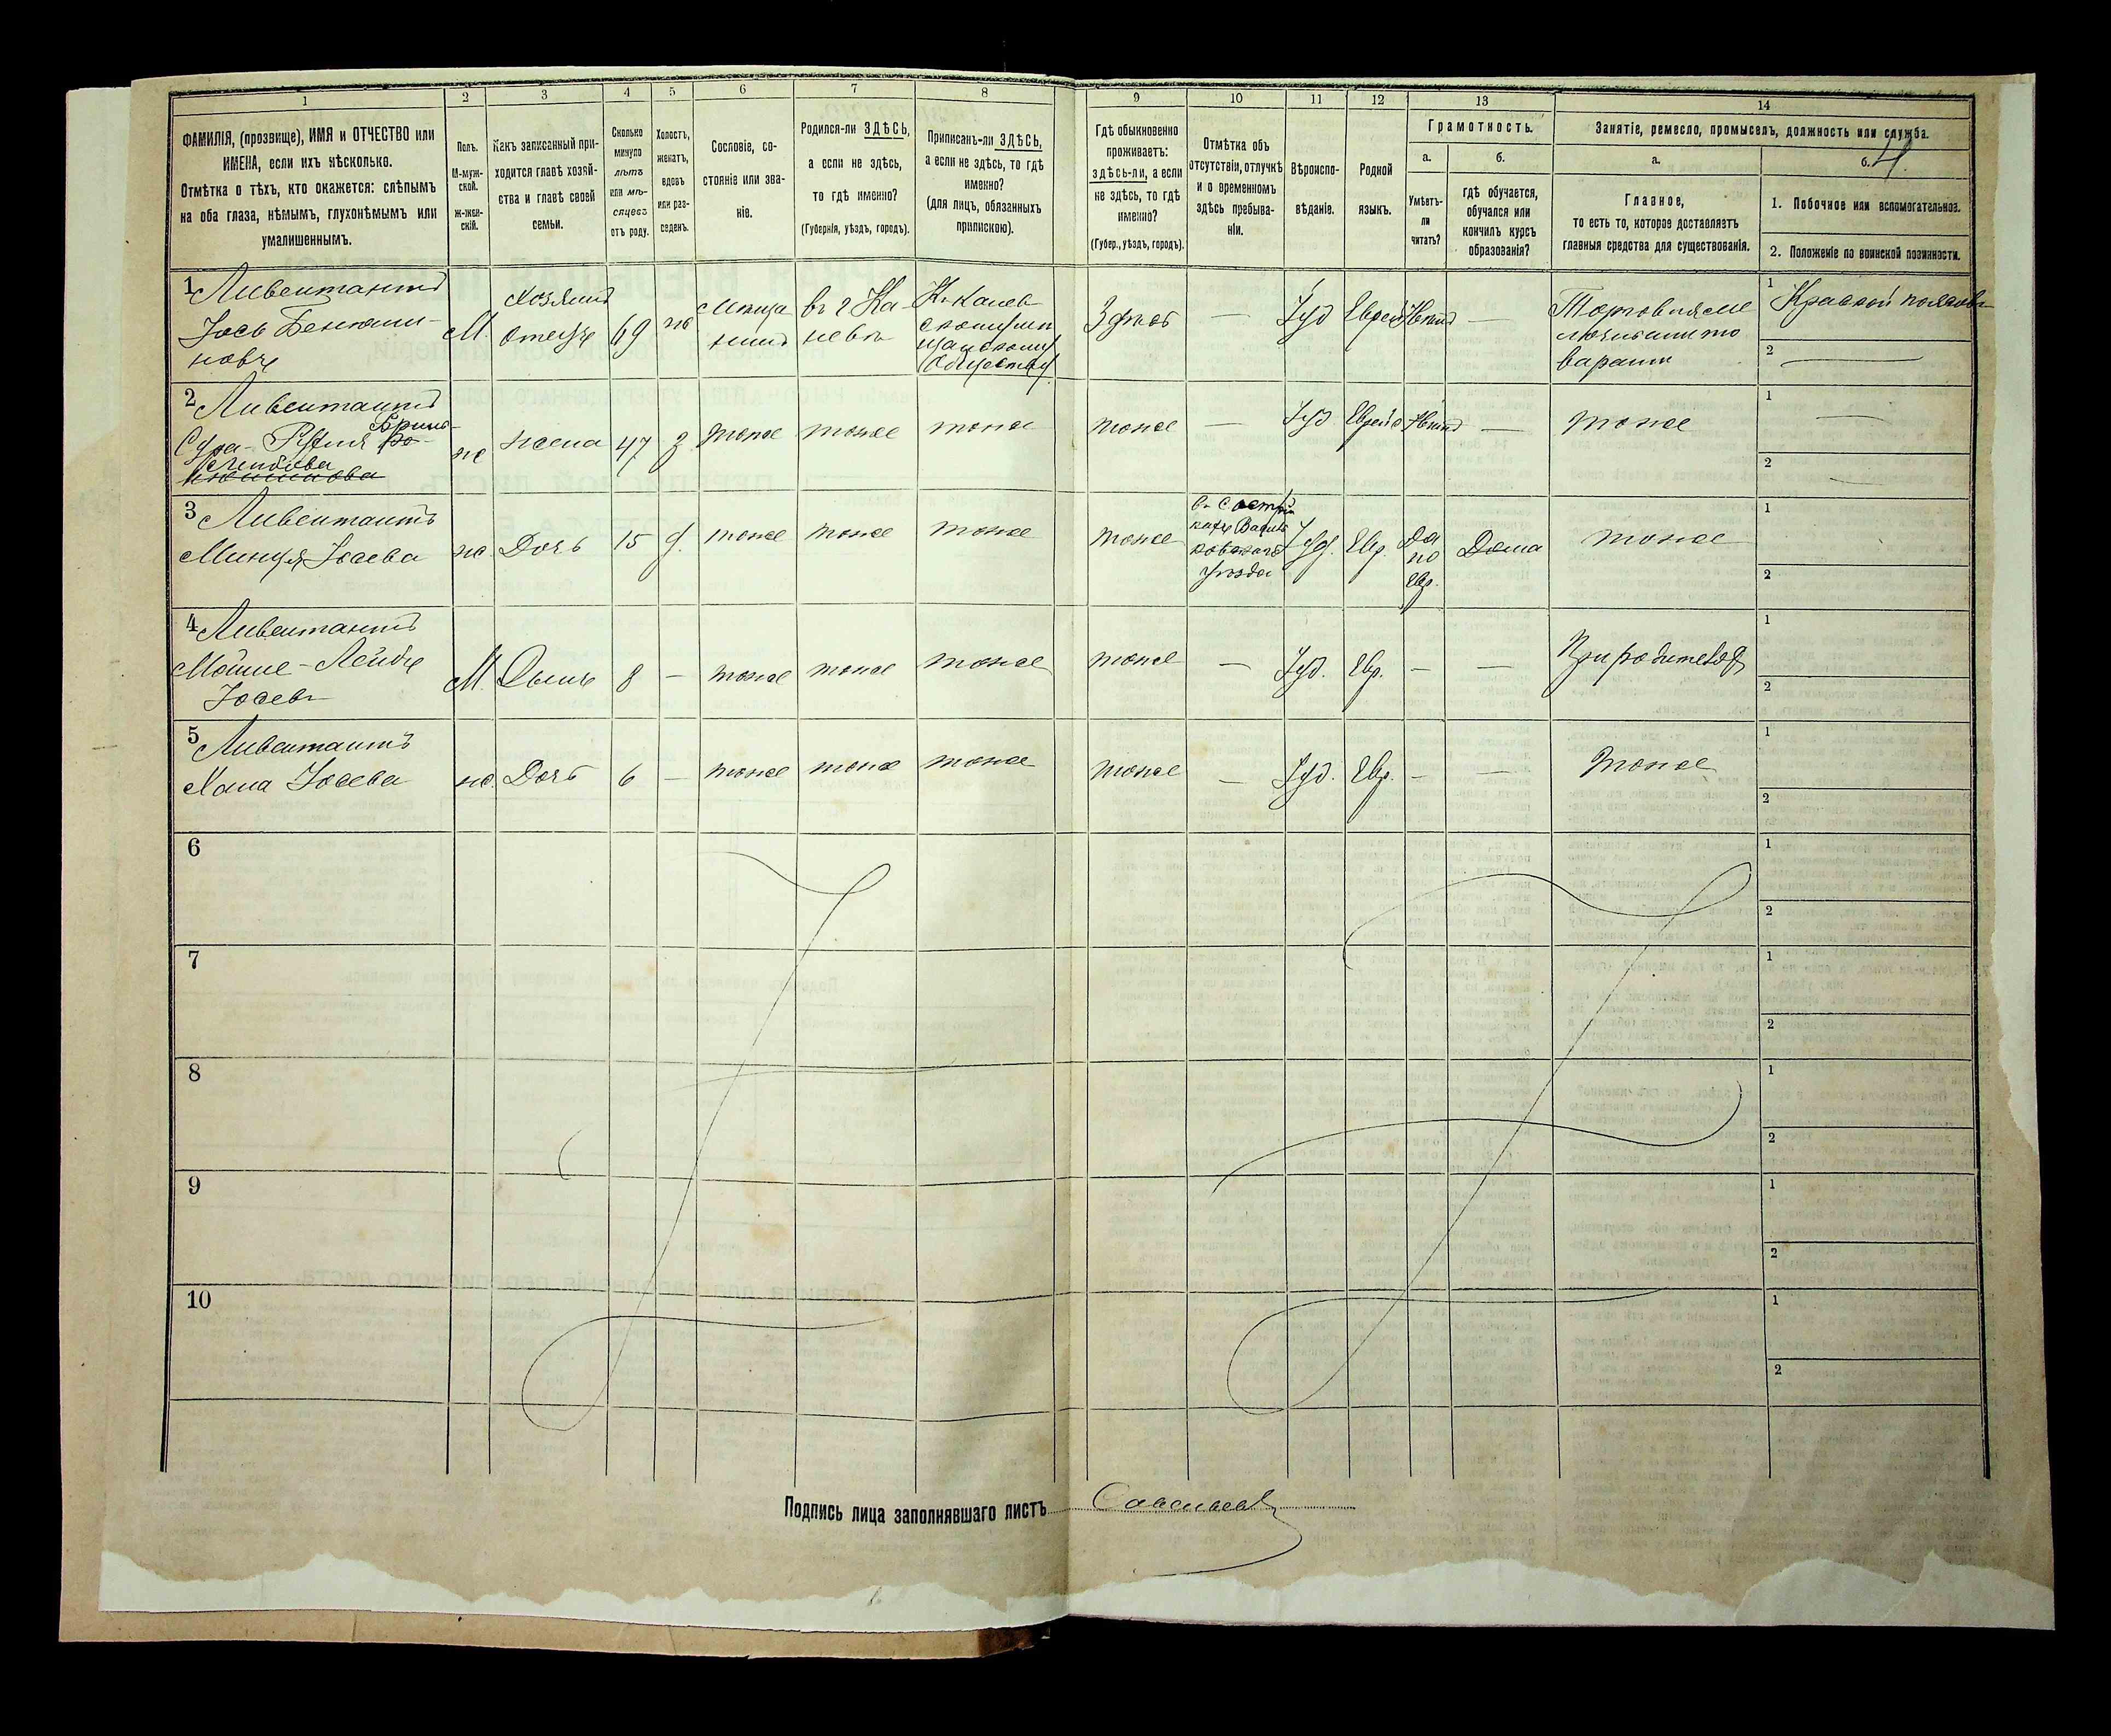 1 2 3 4 5 6 7 8 9 10 11 12 13 14
ФАМИЛІЯ, (прозвище), ИМЯ и ОТЧЕСТВО или
ИМЕНА, если ихъ нѣсколько.
Отмѣтка о тѣхъ, кто окажется: слѣпымъ
на оба глаза, нѣмымъ, глухонѣмымъ или
умалишеннымъ.
Полъ.
М-муж-
ской.
Ж-жен-
скій.
Какъ записанный при-
ходится главѣ хозяй-
ства и главѣ своей
семьи.
Сколько
минуло
лѣтъ
или мѣ-
сяцевъ
отъ роду.
Холостъ,
женатъ,
вдовъ
или раз-
веденъ.
Сословіе, со-
стояніе или зва-
ніе.
Родился-ли ЗДѢСЬ,
а если не здѣсь,
то гдѣ именно?
(Губернія, уѣздъ, городъ).
Приписанъ-ли ЗДѢСЬ,
а если не здѣсь, то гдѣ
именно?
(для лицъ, обязанныхъ
припискою).
Гдѣ обыкновенно
проживаетъ:
здѣсь-ли, а если
не здѣсь, то гдѣ
именно?
(Губер., уѣздъ, городъ).
Отмѣтка объ
отсутствіи, отлучкѣ
и о временномъ
здѣсь пребыва-
ніи.
Вѣроиспо-
вѣданіе.
Родной
языкъ.
Грамотность.
а.
Умѣетъ-
ли
читать?
б.
гдѣ обучается,
обучался или
кончилъ курсъ
образованія?
Занятіе, ремесло, промыселъ, должность или служба.
а.
Главное,
то есть то, которое доставляетъ
главныя средства для существованія.
б.
1. Побочное или вспомогательное.
2. Положеніе по воинской повинности.
1 Ливентантъ
Іось Беньями-
новъ
М.
Хозяинъ
отецъ
49
ж
Мѣща
нинъ
въ г Ка-
невѣ
Къ Канев
скому мѣ
щанскому
Обществу
Здѣсь
—
Іуд
Еврей
Нѣтъ
—
Торговля ме
лочными то
варами
1
2 —
2 Ливентантъ
Сура-
ж
жена
47
з
тоже
тоже
тоже
тоже
—
Іуд
Еврей
Нѣтъ
—
тоже
1 —
2
3 Ливентантъ
Минця Іосева
ж
Дочь
15
д.
тоже
тоже
тоже
тоже
уѣзда
Іуд.
Евр.
Да
по
Евр.
Дома
тоже
1
2
4 Ливентантъ
Мошке-Лейбъ
Іосевъ
М.
Сынъ
8
—
тоже
тоже
тоже
тоже
—
Іуд.
Евр.
—
—
При родителях
1
2
5 Ливентантъ
Хана Іосева
ж.
Дочь
6
—
тоже
тоже
тоже
тоже
—
Іуд.
Евр.
—
—
тоже
1
2
6
1
2
7
1
2
8
1
2
9
1
2
10
1
2
Подпись лица заполнявшаго листъ